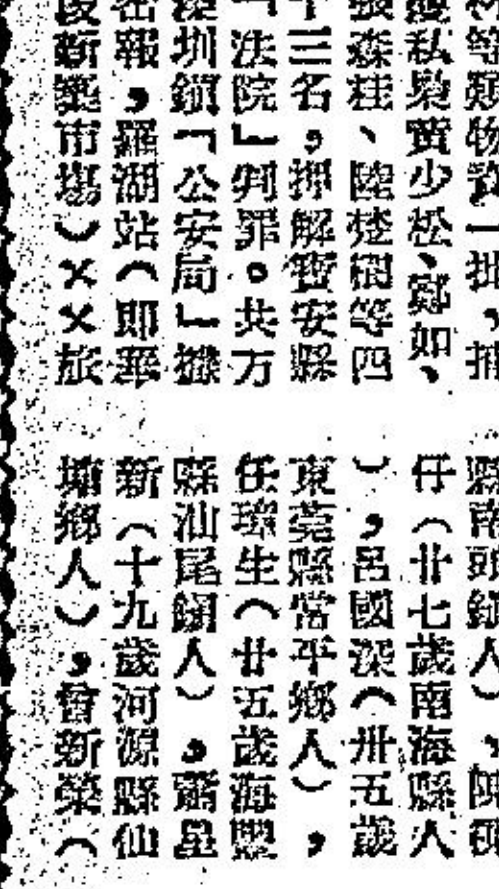 等類物資一批，捕
私梟賈少松、鄭如、
張森桂、陸楚樹等四
十三名，押解寶安縣
「法院」判罪。共方
深圳鎮「公安局」據
密報，羅湖站（即華
新築市場）××旅
縣南頭鎮人），陳
仔（廿七歲南海縣人
），呂國深（卅五歲
東莞縣常平鄉人），
任瑞生（廿五歲海豐
縣汕尾鎮人），蕭星
新（十九歲河源縣仙
塘鄉人），曾新榮（